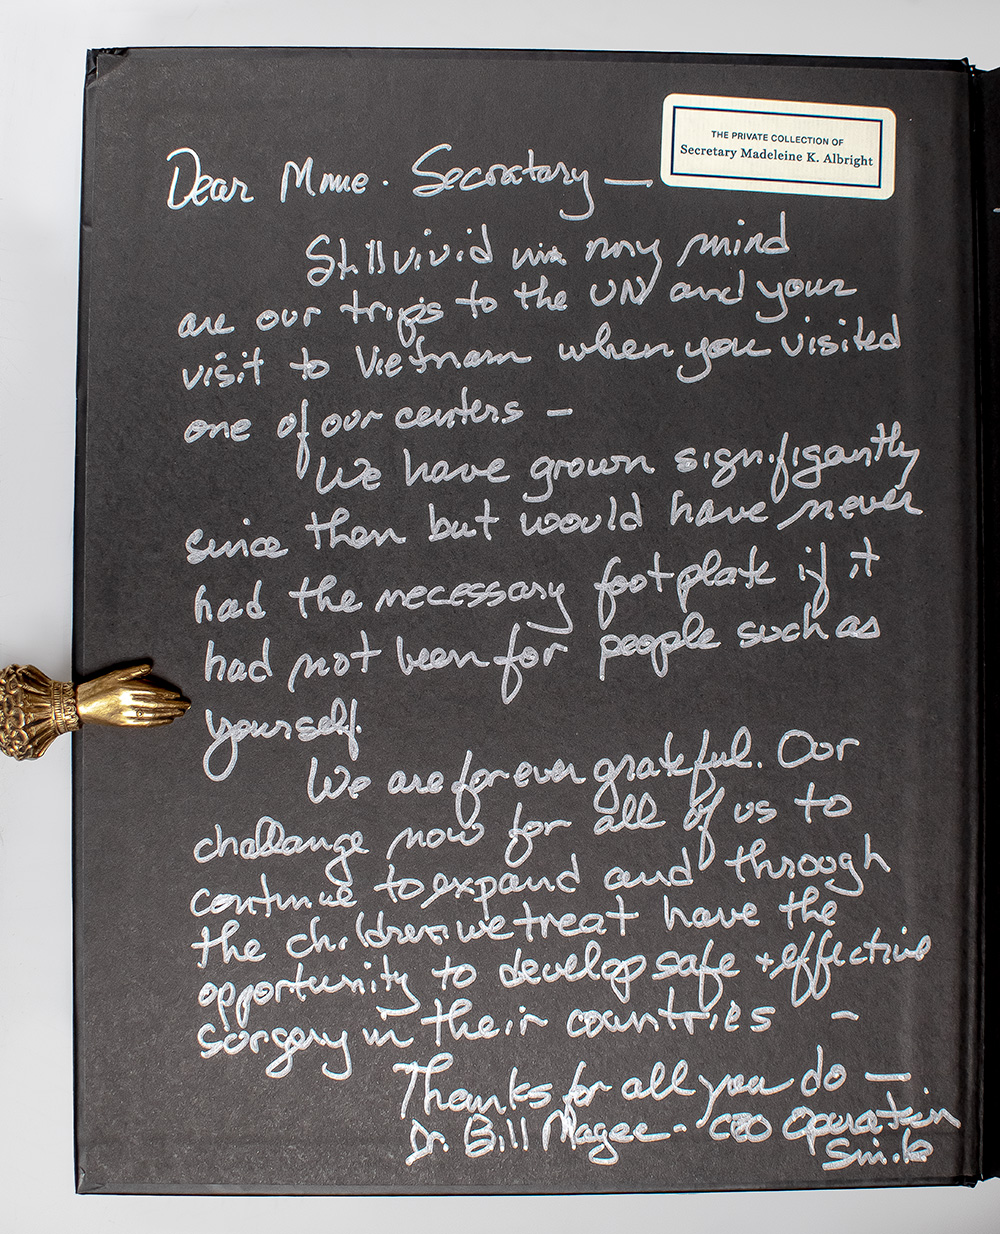 THE PRIVATE COLLECTION OF
Secretary Madeleine K. Albright
Dear Mme. Secretary —
Still vivid in my mind
are our trips to the UN and your
visit to Vietnam when you visited
one of our centers —
We have grown significantly
since then but would have never
had the necessary footplate if it
had not been for people such as
yourself.
We are forever grateful. Our
challange now for all of us to
continue to expand and through
the children we treat have the
opportunity to develop safe + effective
surgery in their countries —
Thanks for all you do —
Dr. Bill Magee - CEO Operation
Smile